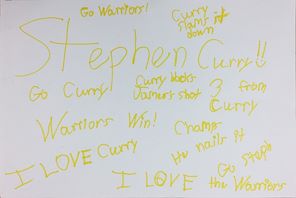 Go Warriors!
Curry slams it down
Stephen Curry!!
Go Curry!
Curry blocks James shot
3 from Curry
Warriors Win!
Champ
He nails it
I LOVE Curry
I LOVE the Warriors
Go Steph